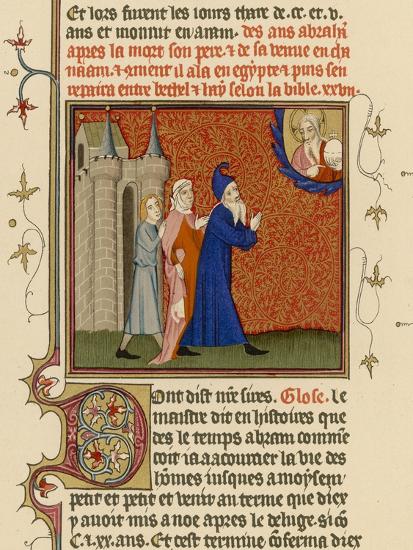 Et lors furent les iours thare de .cc. et .v.
ans et morut en aram. des ans abrahã
apres la mort son pere. & de sa venue en cha
naam. & cõment il ala en egypte & puis sen
repaira entre bethel & hay selon la bible. xxvii.
Dont dist nr̃e sires. Glose. le
maistre dit en histoires que
des le temps abram commẽ
coit ia a acourcier la vie des
hõmes iusques a moysem
petit et petit et venir au terme que diex
y auoit mis a noe apres le deluge. sicõ
C. & .xx. ans. Et cest termine cõferma diex